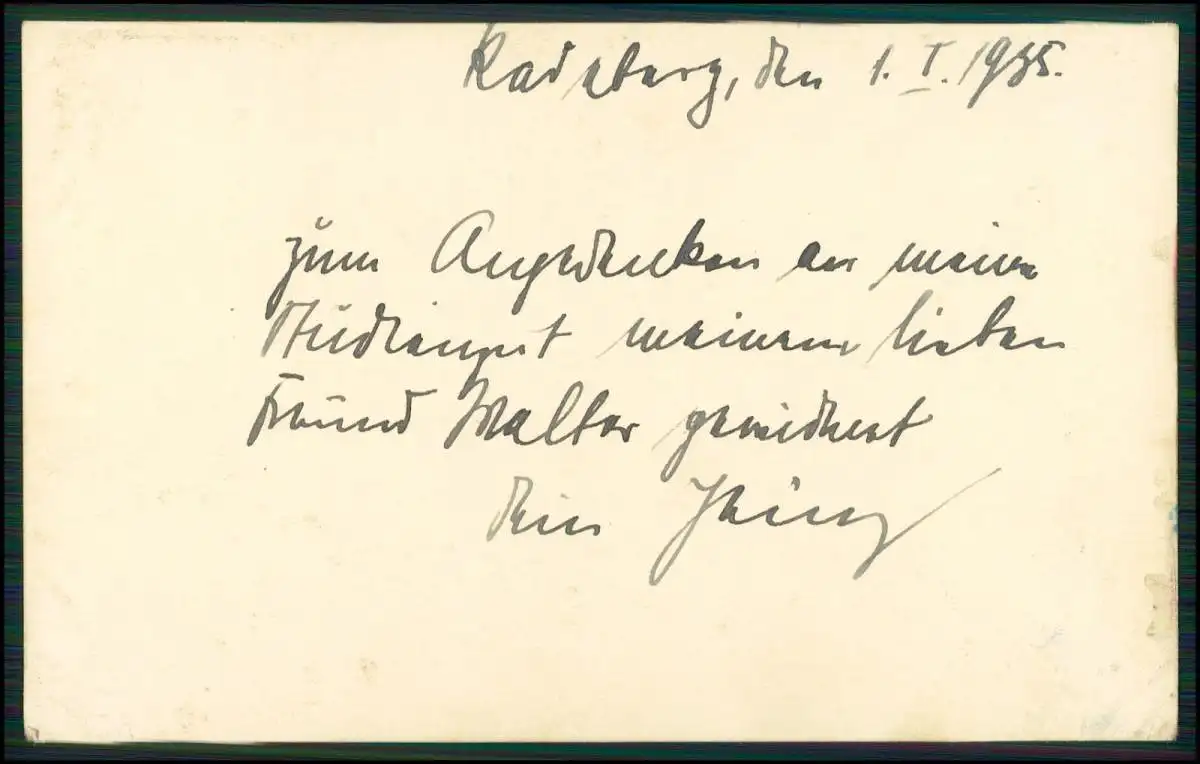 Radeberg, den 1. I. 1935.
zum Angedenken an meine
Studienzeit meinem lieben
Freund Walter gewidmet
dein Heinz